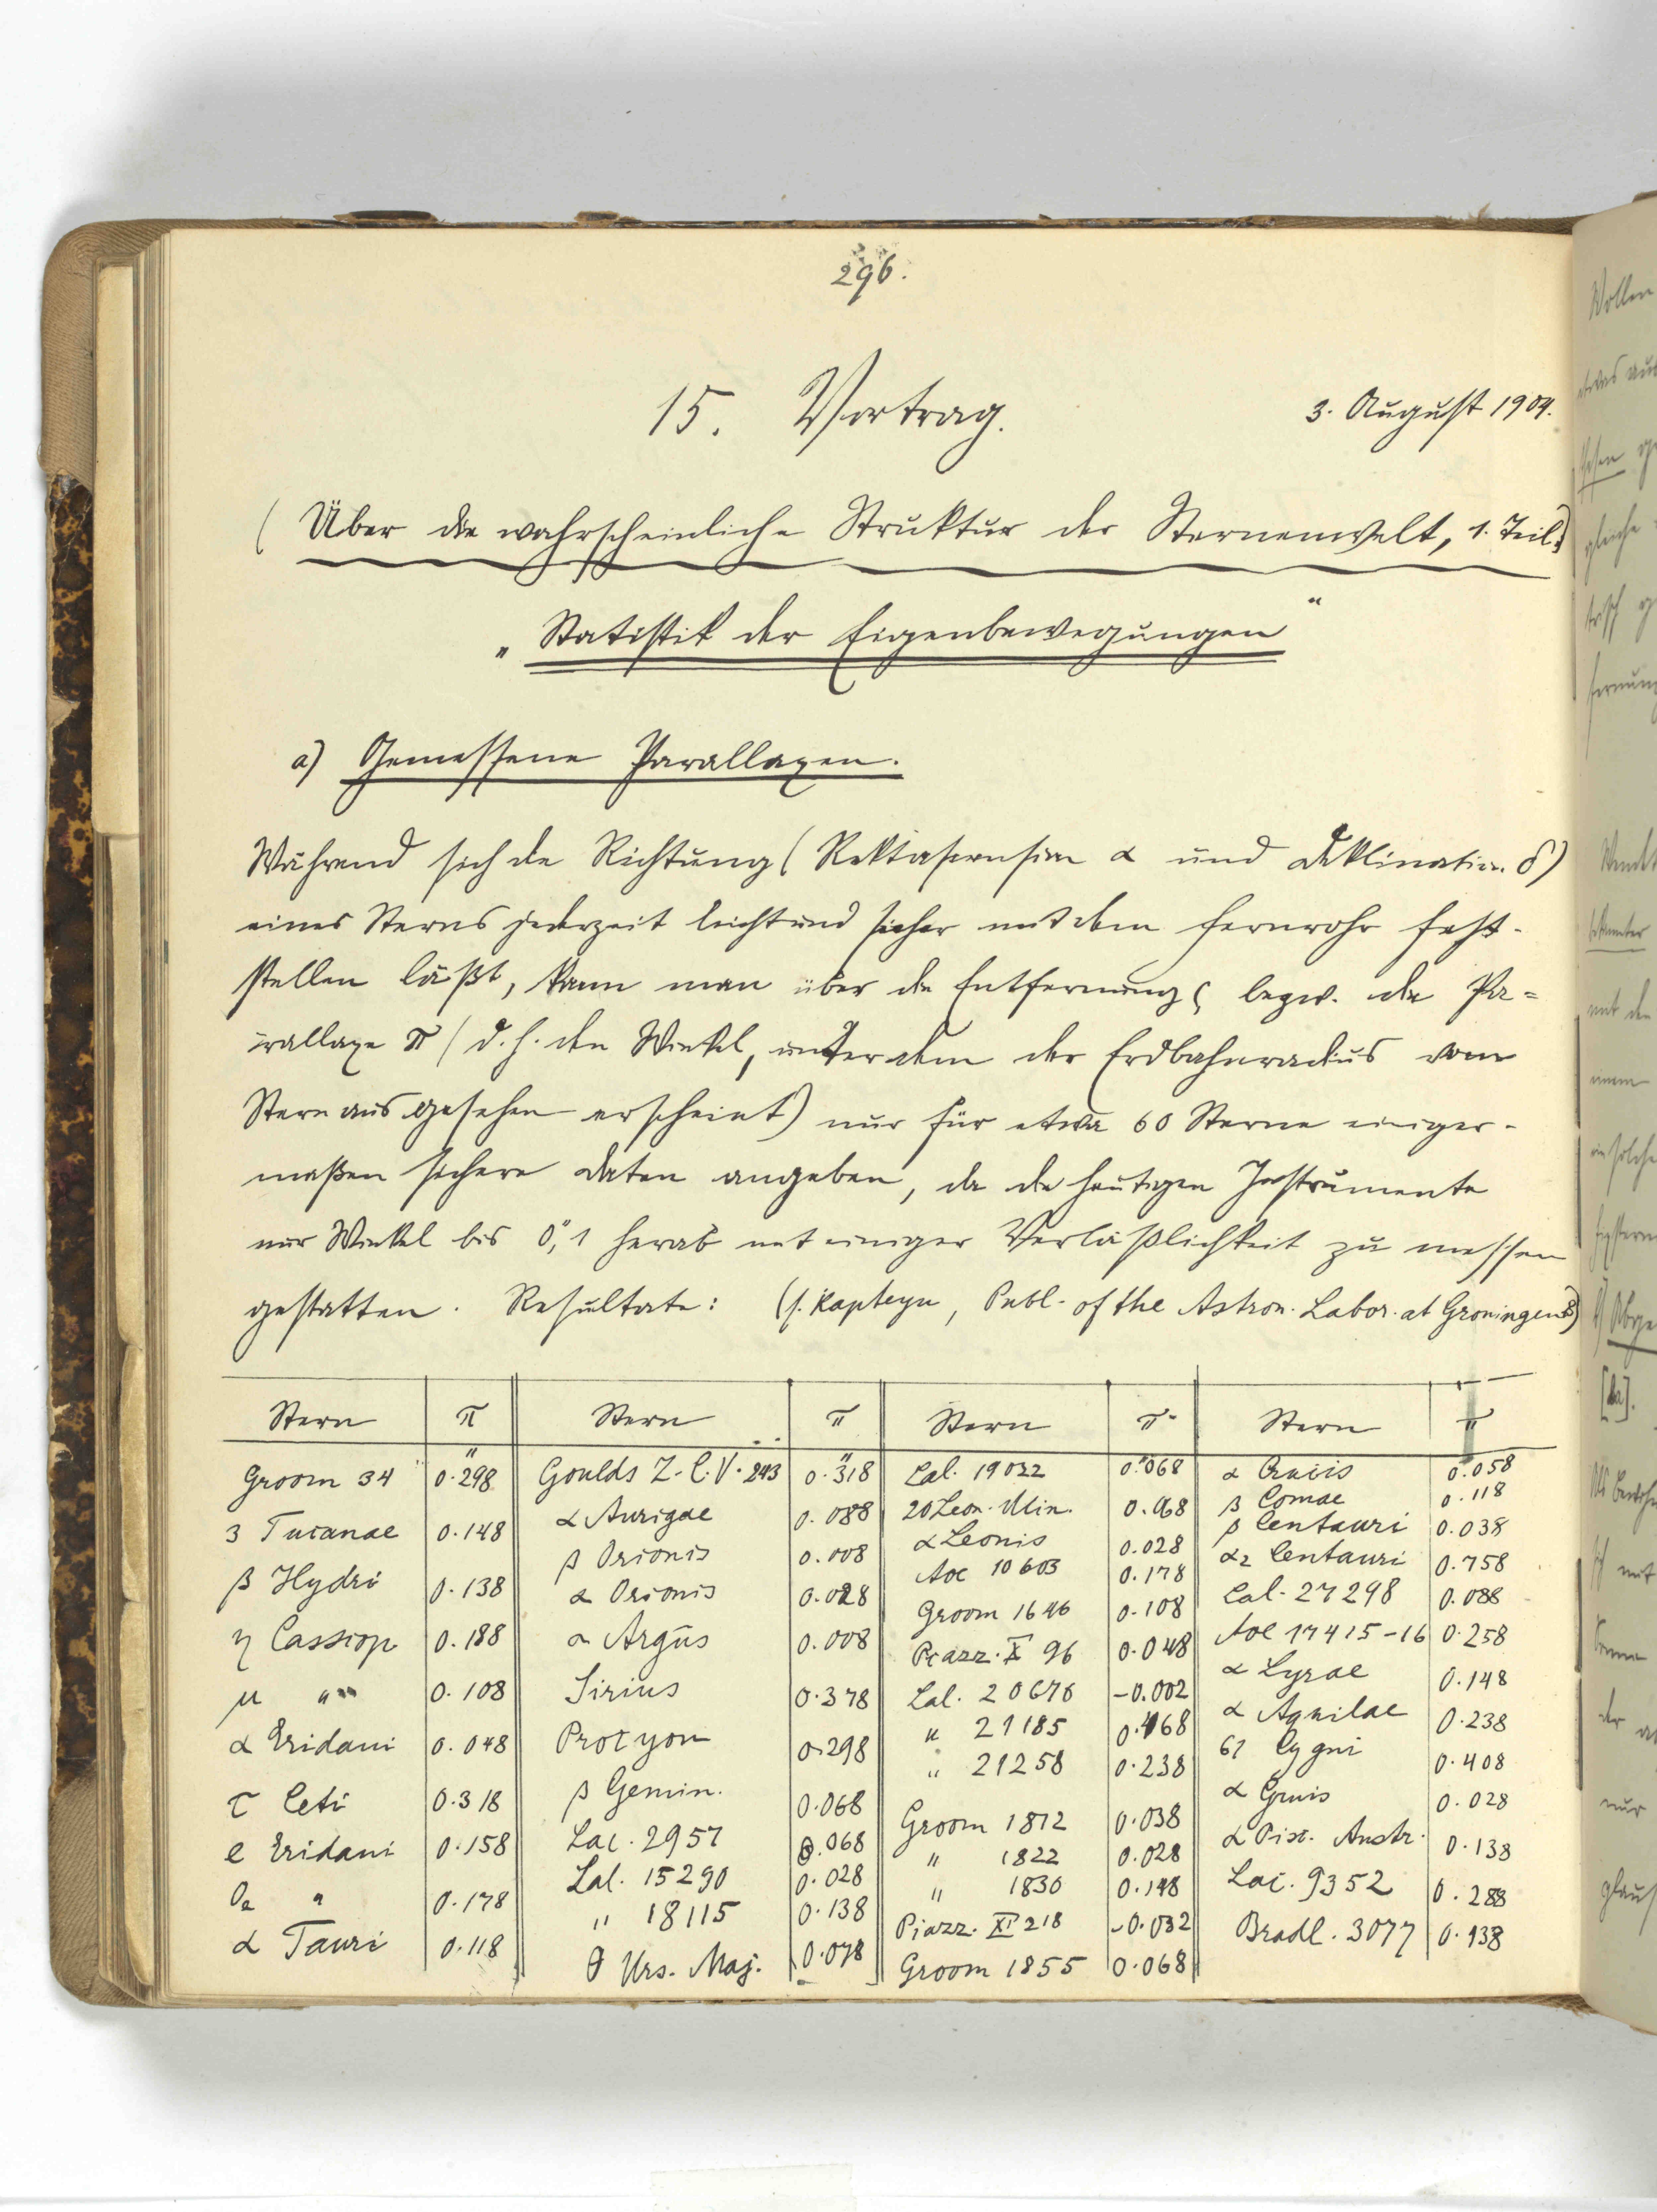 296.
15. Vortrag.
3. August 1904.
(Über die wahrscheinliche Struktur der Sternenwelt, 1. Teil.)
„Statistik der Eigenbewegungen“
a) Gemessene Parallaxen.
Während sich die Richtung (Rektascension α und Deklination δ)
eines Sterns jederzeit leicht und sicher mit dem Fernrohr fest-
stellen läßt, kann man über die Entfernung, bezw. die Pa=
rallaxe π (d.h. den Winkel, unter dem der Erdbahnradius vom
Stern aus gesehen erscheint) nur für etwa 60 Sterne einiger-
maßen sichere Daten angeben, da die heutigen Instrumente
nur Winkel bis 0",1 herab mit einiger Verläßlichkeit zu messen
gestatten. Resultate: (s. Kapteyn, Publ. of the Astron. Labor. at Groningen 8)
Stern π Stern π Stern π Stern π
Groom 34 0."298
3 Tucanae 0.148
β Hydri 0.138
η Cassiop 0.188
μ " 0.108
α Eridani 0.048
τ Ceti 0.318
e Eridani 0.158
O₂ " 0.178
α Tauri 0.118
Goulds Z.C.V. 243 0."318
α Aurigae 0.088
β Orionis 0.008
α Orionis 0.028
α Argus 0.008
Sirius 0.378
Procyon 0.298
β Gemin. 0.068
Lac. 2957 0.068
Lal. 15290 0.028
" 18115 0.138
θ Urs. Maj. 0.078
Lal. 19022 0."068
20 Leon. Min. 0.068
α Leonis 0.028
Aoe 10603 0.178
Groom 1646 0.108
Piazz. X 96 0.048
Lal. 20670 -0.002
" 21185 0.468
" 21258 0.238
Groom 1812 0.038
" 1822 0.028
" 1830 0.148
Piazz. XI 218 -0.032
Groom 1855 0.068
α Crucis 0."058
β Comae 0.118
β Centauri 0.038
α₂ Centauri 0.758
Lal. 27298 0.088
Aoe 17415-16 0.258
α Lyrae 0.148
α Aquilae 0.238
61 Cygni 0.408
α Gruis 0.028
α Pisc. Austr. 0.138
Lac. 9352 0.288
Bradl. 3077 0.138